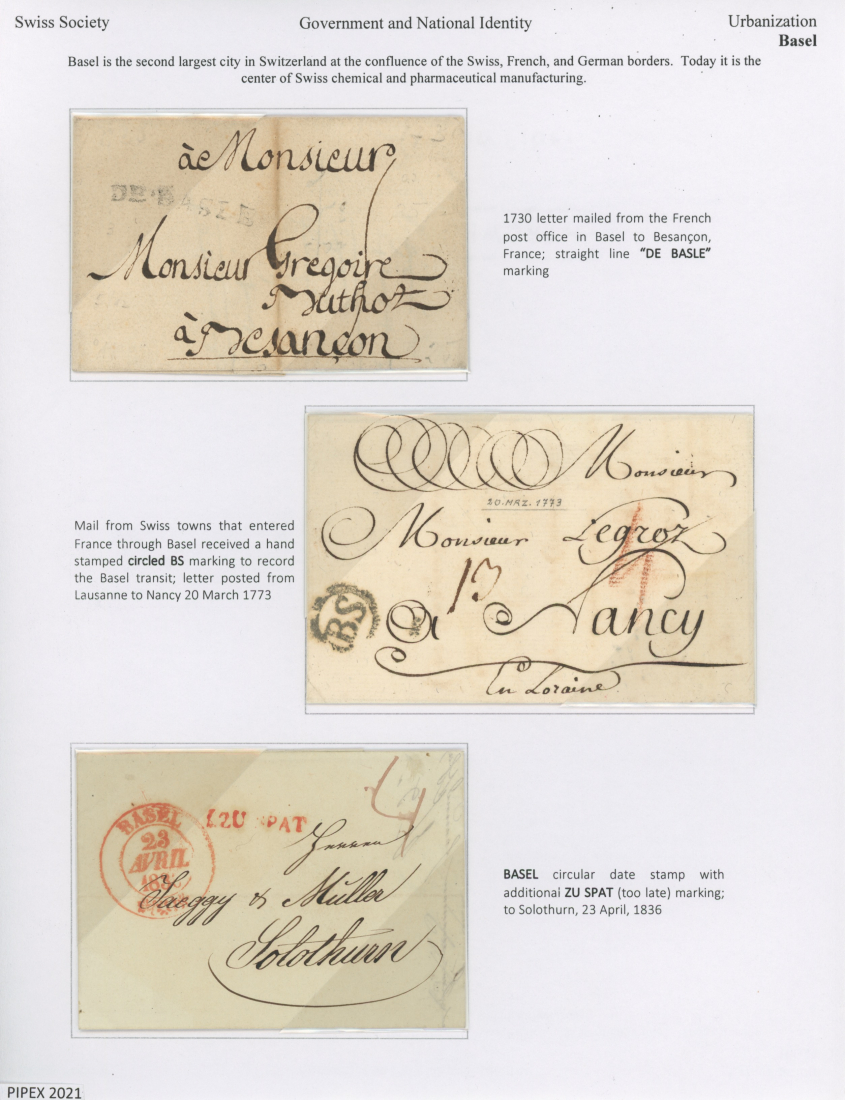 Swiss Society Government and National Identity Urbanization
Basel
Basel is the second largest city in Switzerland at the confluence of the Swiss, French, and German borders. Today it is the
center of Swiss chemical and pharmaceutical manufacturing.
à Monsieur
DE BASLE
Monsieur Gregoire
à Besançon
1730 letter mailed from the French
post office in Basel to Besançon,
France; straight line “DE BASLE”
marking
Mail from Swiss towns that entered
France through Basel received a hand
stamped circled BS marking to record
the Basel transit; letter posted from
Lausanne to Nancy 20 March 1773
Monsieur
20. MRZ. 1773
Monsieur Legroz
13
4
BS
a Nancy
En Loraine
BASEL
23
AVRIL
ZU SPAT
4
Herren
Jaeggy & Müller
Solothurn
BASEL circular date stamp with
additional ZU SPAT (too late) marking;
to Solothurn, 23 April, 1836
PIPEX 2021